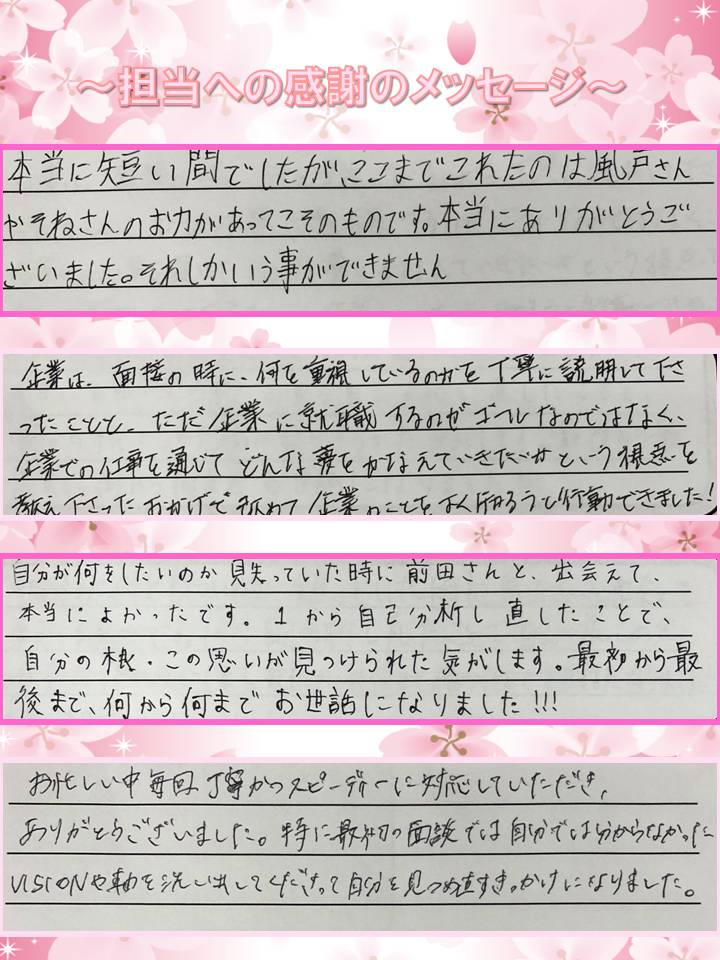 ～担当への感謝のメッセージ～
本当に短い間でしたが、ここまでこれたのは風戸さん
かそねさんのお力があってこそのものです。本当にありがとうご
ざいました。それしかいう事ができません
企業は、面接の時に、何を重視しているのかを丁寧に説明して下さ
ったことと、ただ企業に就職するのがゴールなのではなく、
企業での仕事を通じてどんな夢をかなえていきたいかという視点を
教え下さったおかげで改めて企業のことをよく知ろうと行動できました！
自分が何をしたいのか見失っていた時に前田さんと、出会えて、
本当によかったです。1から自己分析し直したことで、
自分の根・この思いが見つけられた気がします。最初から最
後まで、何から何までお世話になりました!!!
お忙しい中毎回丁寧かつスピーディーに対応していただき、
ありがとうございました。特に最初の面談では自分では分からなかった
VISIONや軸を洗い出してくださって自分を見つめ直すきっかけになりました。